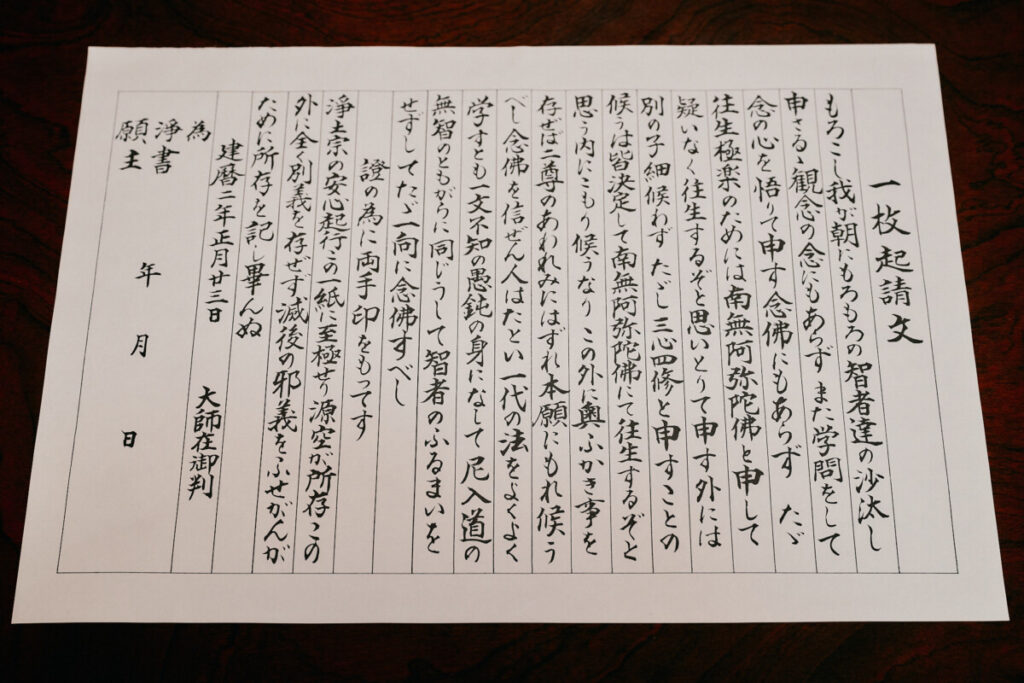 一枚起請文
もろこし我が朝にもろもろの智者達の沙汰し
申さるゝ観念の念にもあらず また学問をして
念の心を悟りて申す念佛にもあらず たゞ
往生極楽のためには南無阿弥陀佛と申して
疑いなく往生するぞと思いとりて申す外には
別の子細候わず たゞし三心四修と申すことの
候うは皆決定して南無阿弥陀佛にて往生するぞと
思う内にこもり候うなり この外に奥ふかき事を
存ぜば二尊のあわれみにはずれ本願にもれ候う
べし 念佛を信ぜん人はたとい一代の法をよくよく
学すとも一文不知の愚鈍の身になして 尼入道の
無智のともがらに同じうして 智者のふるまいを
せずしてたゞ一向に念佛すべし
證の為に両手印をもってす
浄土宗の安心起行この一紙に至極せり 源空が所存この
外に全く別義を存ぜず 滅後の邪義をふせがんが
ために所存を記し畢んぬ
建暦二年正月廿三日
大師在御判
為
浄書 年 月 日
願主